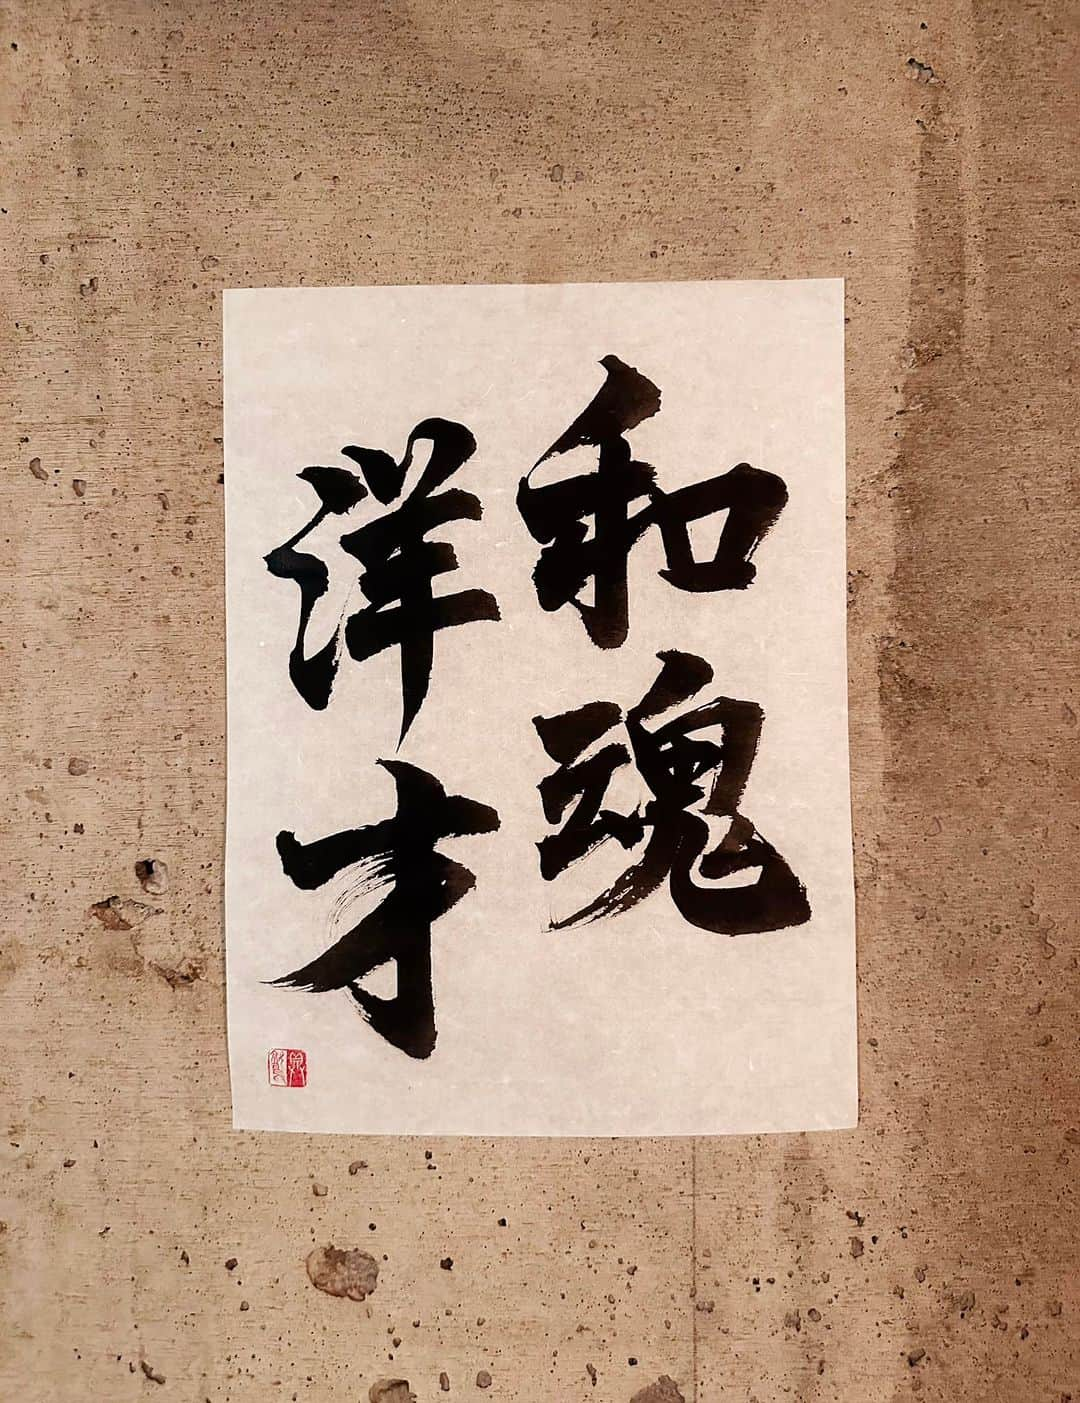 和魂
洋才